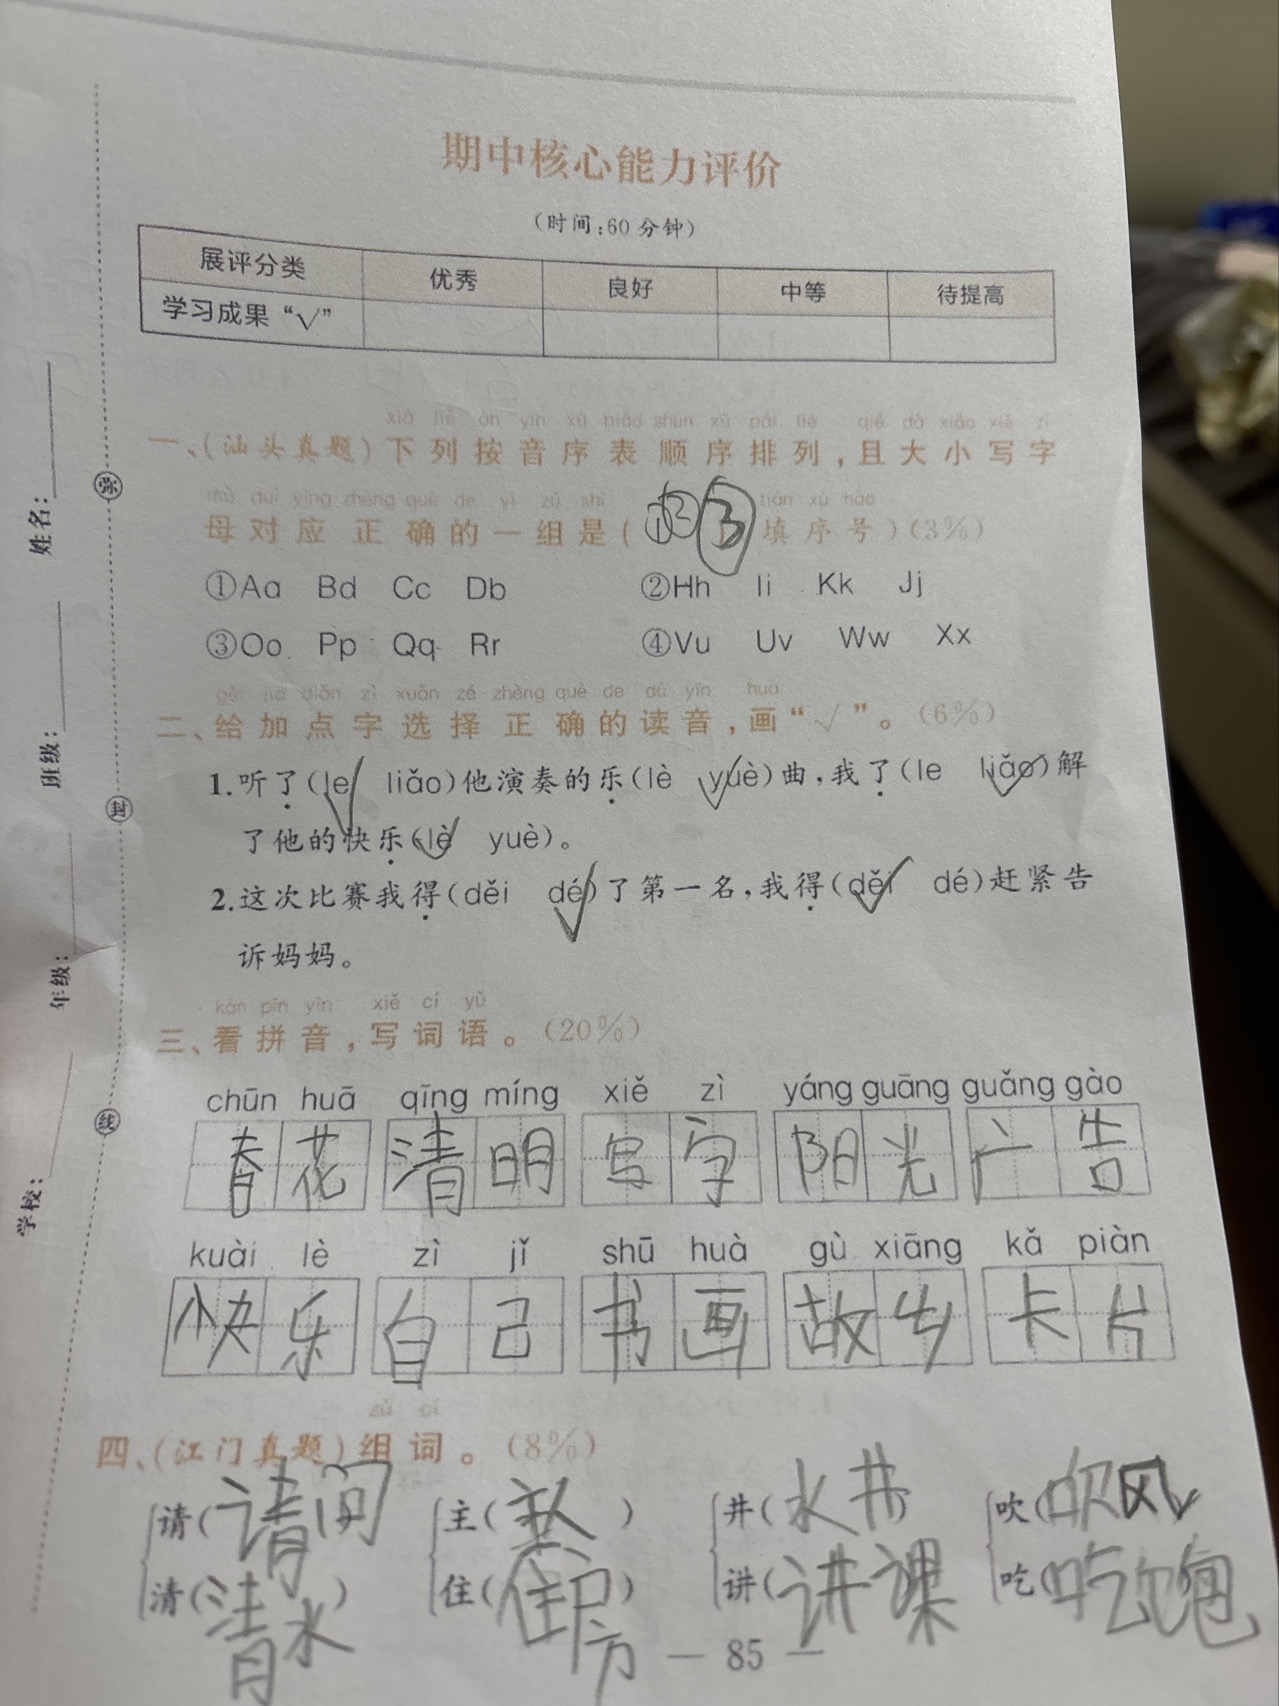 期中核心能力评价
(时间:60分钟)
展评分类 优秀 良好 中等 待提高
学习成果“√”
xià liè àn yīn xù biǎo shùn xù pái liè qiě dà xiǎo xiě zì
一、(汕头真题)下列按音序表顺序排列,且大小写字
mǔ duì yìng zhèng què de yì zǔ shì tián xù hào
母对应正确的一组是( ③ 填序号)(3%)
①Aa Bd Cc Db ②Hh Ii Kk Jj
③Oo Pp Qq Rr ④Vu Uv Ww Xx
gěi jiā diǎn zì xuǎn zé zhèng què de dú yīn huà
二、给加点字选择正确的读音,画“√”。(6%)
1.听了(le liǎo)他演奏的乐(lè yuè)曲,我了(le liǎo)解
了他的快乐(lè yuè)。
2.这次比赛我得(děi dé)了第一名,我得(děi dé)赶紧告
诉妈妈。
kàn pīn yīn xiě cí yǔ
三、看拼音,写词语。(20%)
chūn huā qīng míng xiě zì yáng guāng guǎng gào
春花 清明 写字 阳光 广告
kuài lè zì jǐ shū huà gù xiāng kǎ piàn
快乐 自己 书画 故乡 卡片
zǔ cí
四、(江门真题)组词。(8%)
请(请问) 主(主人) 井(水井) 吹(吹风)
清(清水) 住(住房) 讲(讲课) 吃(吃饱)
— 85 —
学校: 年级: 班级: 姓名:
线 封 密